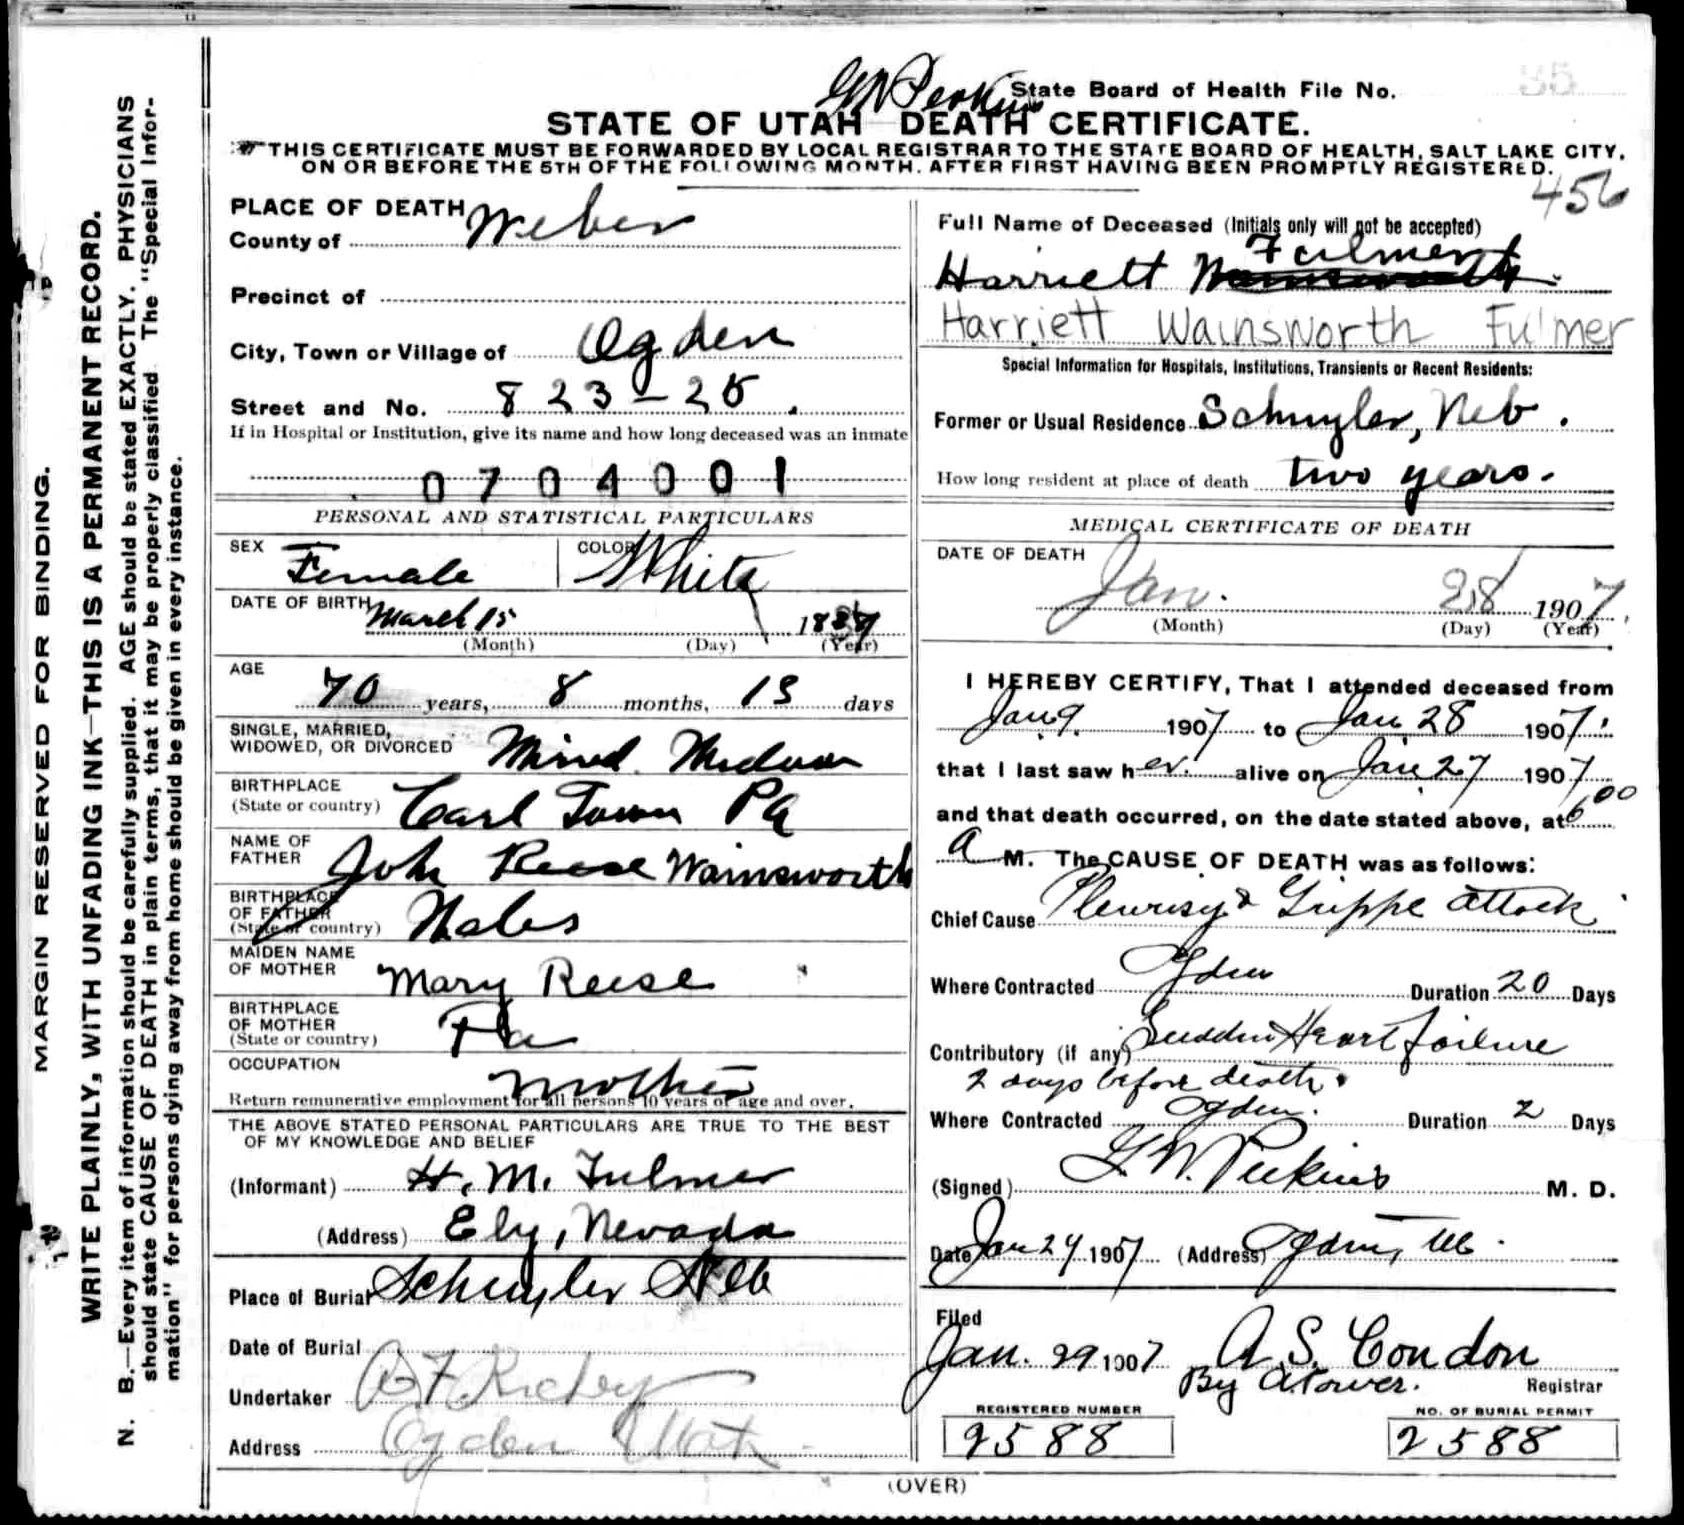 G W Perkins
State Board of Health File No. 35
STATE OF UTAH DEATH CERTIFICATE.
THIS CERTIFICATE MUST BE FORWARDED BY LOCAL REGISTRAR TO THE STATE BOARD OF HEALTH, SALT LAKE CITY,
ON OR BEFORE THE 5TH OF THE FOLLOWING MONTH. AFTER FIRST HAVING BEEN PROMPTLY REGISTERED.
456
MARGIN RESERVED FOR BINDING.
WRITE PLAINLY, WITH UNFADING INK—THIS IS A PERMANENT RECORD.
N. B.—Every item of information should be carefully supplied. AGE should be stated EXACTLY. PHYSICIANS
should state CAUSE OF DEATH in plain terms, that it may be properly classified The "Special Infor-
mation" for persons dying away from home should be given in every instance.
PLACE OF DEATH
County of Weber
Precinct of
City, Town or Village of Ogden
Street and No. 823-25.
If in Hospital or Institution, give its name and how long deceased was an inmate
0704001
PERSONAL AND STATISTICAL PARTICULARS
SEX Female COLOR White
DATE OF BIRTH March 15
(Month) (Day) (Year)
AGE
70 years, 8 months, 13 days
SINGLE, MARRIED,
WIDOWED, OR DIVORCED
BIRTHPLACE
(State or country) Carl Town Pa
NAME OF
FATHER John Reese Wainsworth
BIRTHPLACE
OF FATHER
(State or country) Wales
MAIDEN NAME
OF MOTHER Mary Reese
BIRTHPLACE
OF MOTHER
(State or country) Pa
OCCUPATION
Mother
Return remunerative employment for all persons 10 years of age and over.
THE ABOVE STATED PERSONAL PARTICULARS ARE TRUE TO THE BEST
OF MY KNOWLEDGE AND BELIEF
(Informant) H. M. Fulmer
(Address) Ely, Nevada
Place of Burial Schuyler Neb
Date of Burial
Undertaker
Address Ogden Utah
Full Name of Deceased (Initials only will not be accepted)
Fulmer
Harriett
Harriett Wainsworth Fulmer
Special Information for Hospitals, Institutions, Transients or Recent Residents:
Former or Usual Residence Schuyler, Neb.
How long resident at place of death two years.
MEDICAL CERTIFICATE OF DEATH
DATE OF DEATH
Jan. 28 1907.
(Month) (Day) (Year)
I HEREBY CERTIFY, That I attended deceased from
Jan 9 1907 to Jan 28 1907.
that I last saw her alive on Jan 27 1907
and that death occurred, on the date stated above, at 6 00
a M. The CAUSE OF DEATH was as follows:
Chief Cause Pleurisy & Grippe attack
Where Contracted Ogden Duration 20 Days
Contributory (if any) Sudden Heart failure
2 days before death.
Where Contracted Ogden. Duration 2 Days
(Signed) G. W. Perkins M. D.
Date Jan 1907 (Address) Ogden,
Filed
Jan. 29 1907 A. S. Condon
By Registrar
REGISTERED NUMBER
2588
NO. OF BURIAL PERMIT
2588
(OVER)